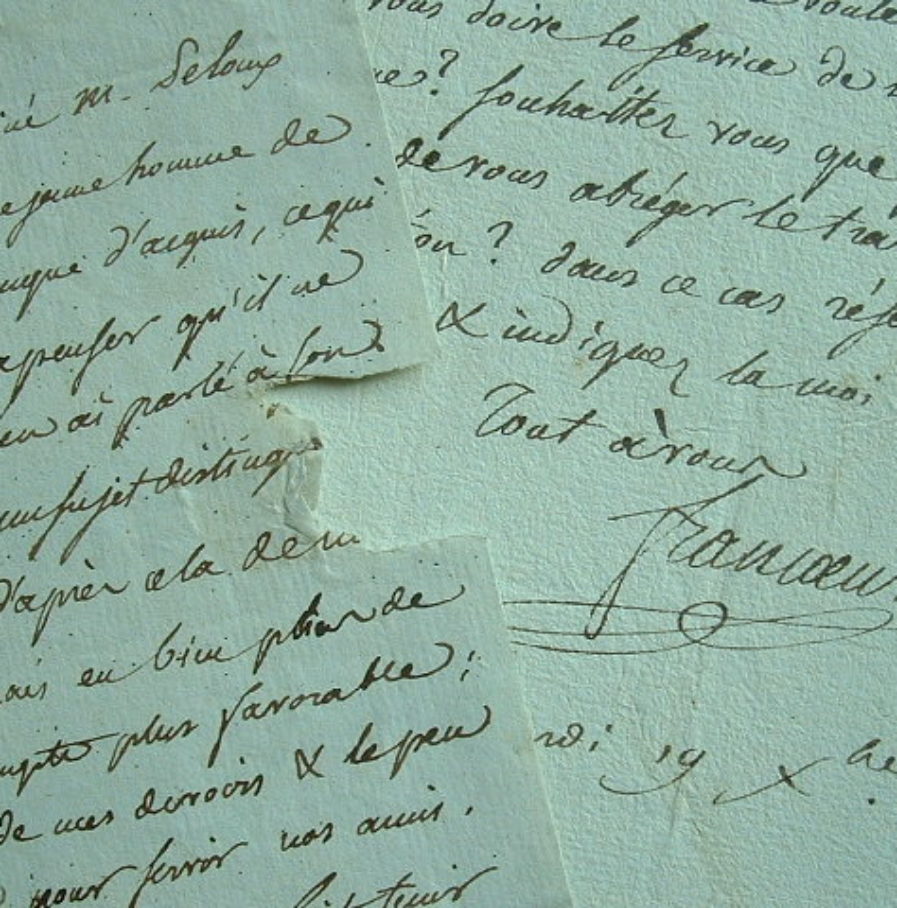 M. Leloup
jeune homme de
d'acquis, cequi
apenser qu'il ne
en ai parlé à son
un sujet distingu
d'après cela de
ais en bien plus de
plus favorable;
de mes devoirs & le peu
pour servir nos amis.
vous doire le service de
? souhaittez vous que
de vous abréger le tra
on? dans ce cas
& indiquez la moi
Tout à vous
francoeur
di 19 X bre